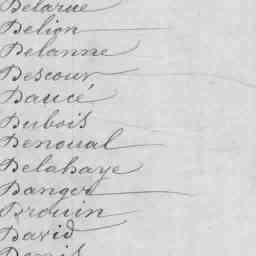 Delarue
Delion
Delanne
Descour
Daucé
Dubois
Denoual
Delahaye
Danger
Drouin
David
Denis